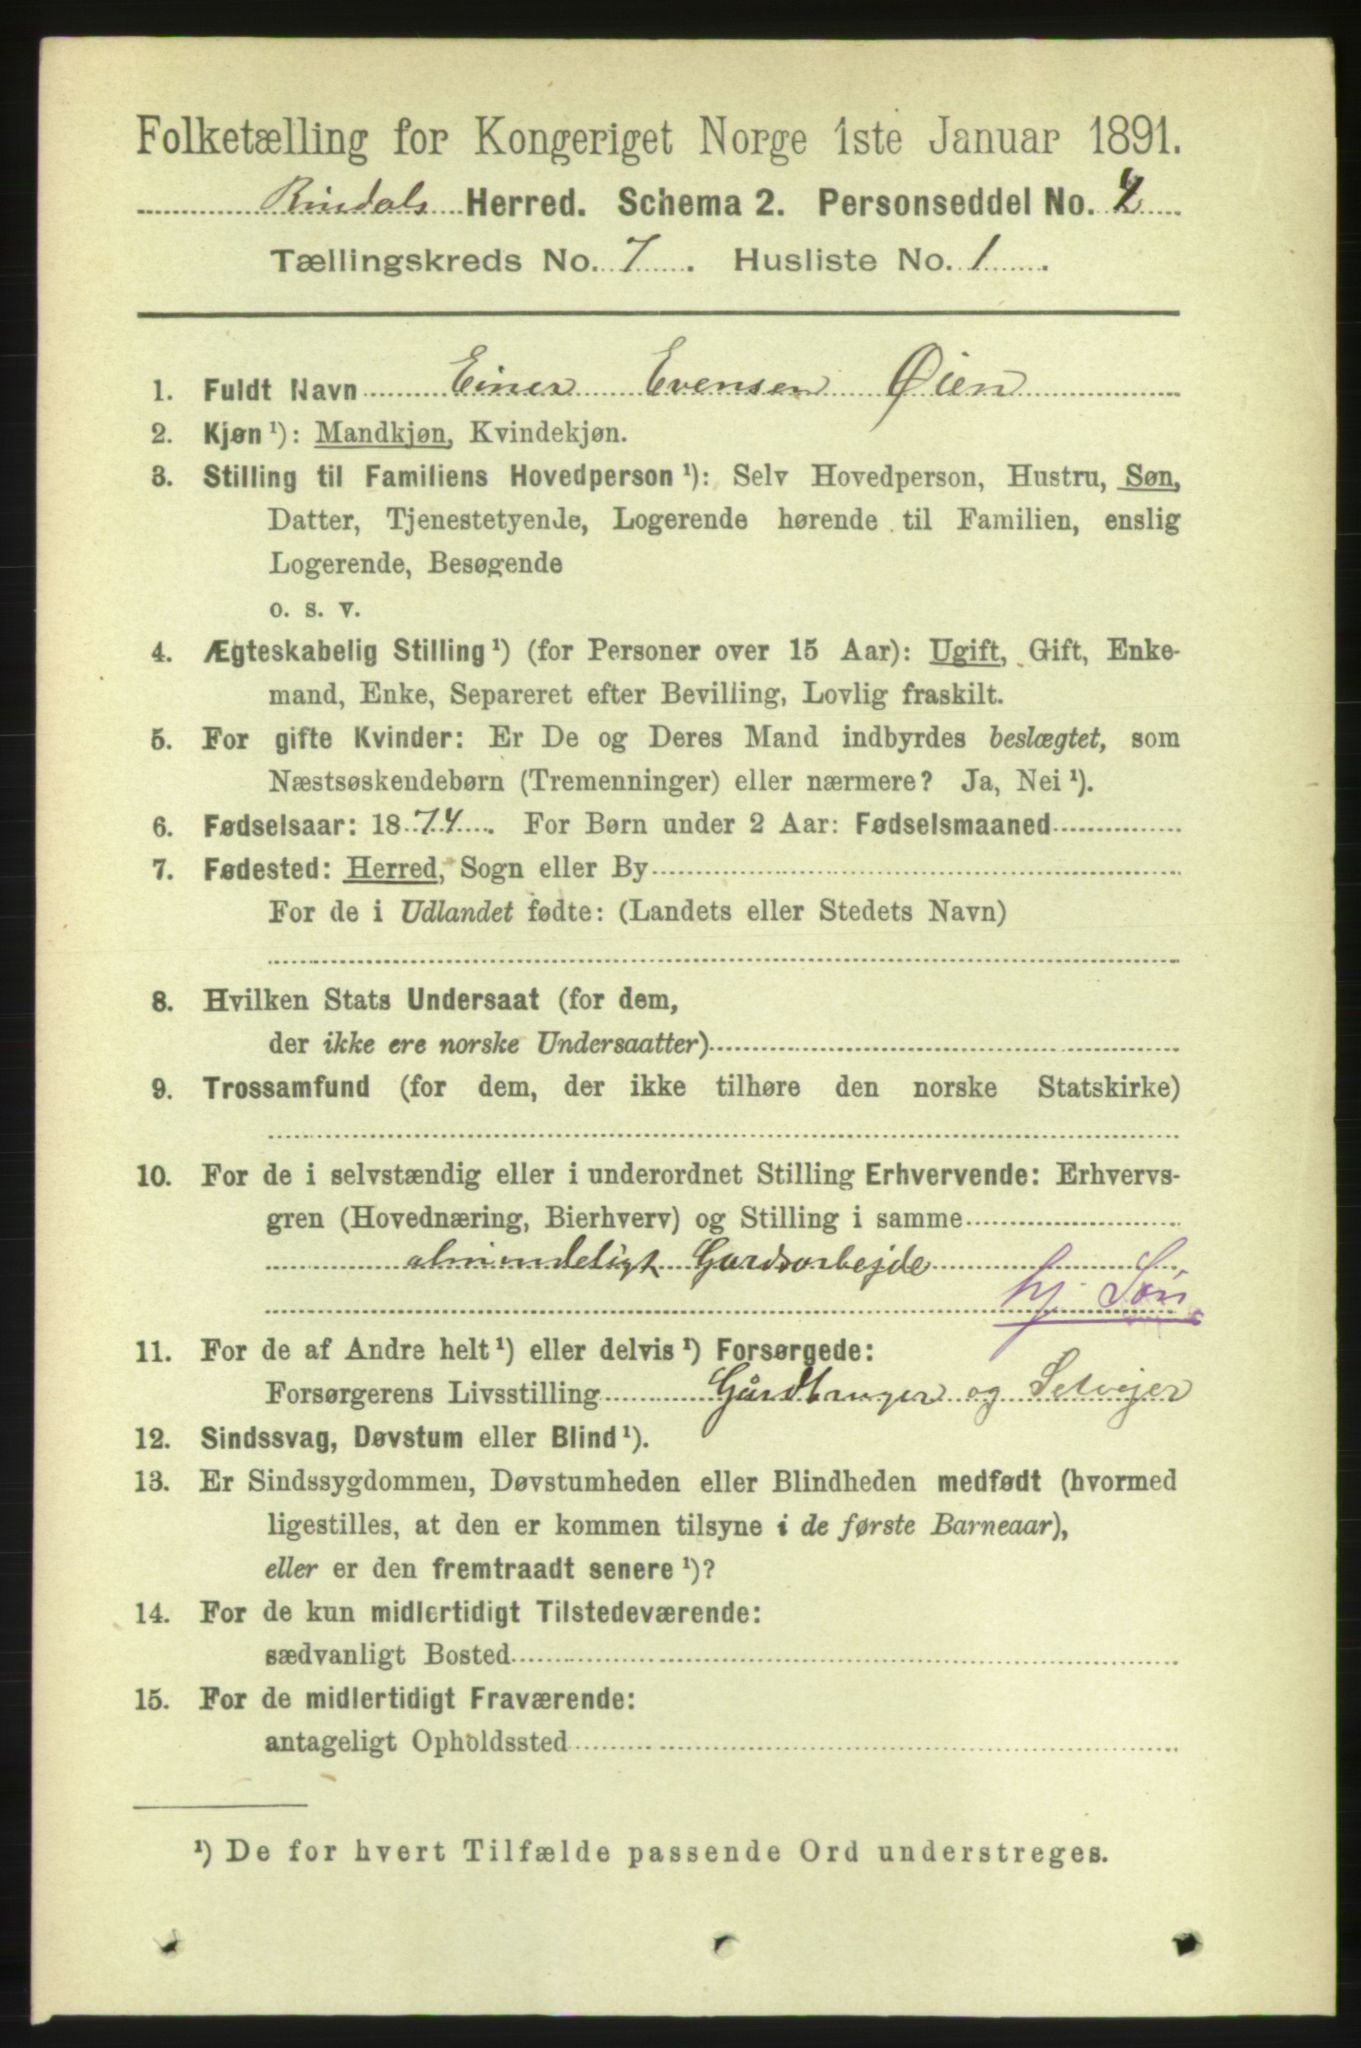 Folketælling for Kongeriget Norge 1ste Januar 1891.
Rindals Herred. Schema 2. Personseddel No.
Tællingskreds No. 7. Husliste No. 1.
1. Fuldt Navn Einer Evensen Øien
2. Kjøn ¹): Mandkjøn, Kvindekjøn.
3. Stilling til Familiens Hovedperson ¹): Selv Hovedperson, Hustru, Søn,
Datter, Tjenestetyende, Logerende hørende til Familien, enslig
Logerende, Besøgende
o. s. v.
4. Ægteskabelig Stilling ¹) (for Personer over 15 Aar): Ugift, Gift, Enke-
mand, Enke, Separeret efter Bevilling, Lovlig fraskilt.
5. For gifte Kvinder: Er De og Deres Mand indbyrdes beslægtet, som
Næstsøskendebørn (Tremenninger) eller nærmere? Ja, Nei ¹).
6. Fødselsaar: 1874. For Børn under 2 Aar: Fødselsmaaned
7. Fødested: Herred, Sogn eller By
For de i Udlandet fødte: (Landets eller Stedets Navn)
8. Hvilken Stats Undersaat (for dem,
der ikke ere norske Undersaatter)
9. Trossamfund (for dem, der ikke tilhøre den norske Statskirke)
10. For de i selvstændig eller i underordnet Stilling Erhvervende: Erhvervs-
gren (Hovednæring, Bierhverv) og Stilling i samme
almindeligt Gardsarbejde
hj. Søn
11. For de af Andre helt ¹) eller delvis ¹) Forsørgede:
Forsørgerens Livsstilling Gårdbruger og Selvejer
12. Sindssvag, Døvstum eller Blind ¹).
13. Er Sindssygdommen, Døvstumheden eller Blindheden medfødt (hvormed
ligestilles, at den er kommen tilsyne i de første Barneaar),
eller er den fremtraadt senere ¹)?
14. For de kun midlertidigt Tilstedeværende:
sædvanligt Bosted
15. For de midlertidigt Fraværende:
antageligt Opholdssted
¹) De for hvert Tilfælde passende Ord understreges.